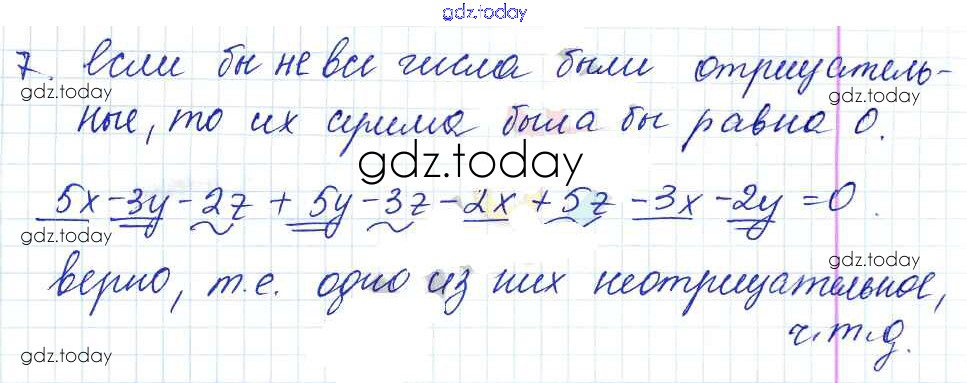 gdz.today
7. Если бы не все числа были отрицатель-
gdz.today gdz.today
ные, то их сумма была бы равна 0.
gdz.today
5x - 3y - 2z + 5y - 3z - 2x + 5z - 3x - 2y = 0.
gdz.today
верно, т.е. одно из них неотрицательное,
gdz.today
ч.т.д.
gdz.today gdz.today